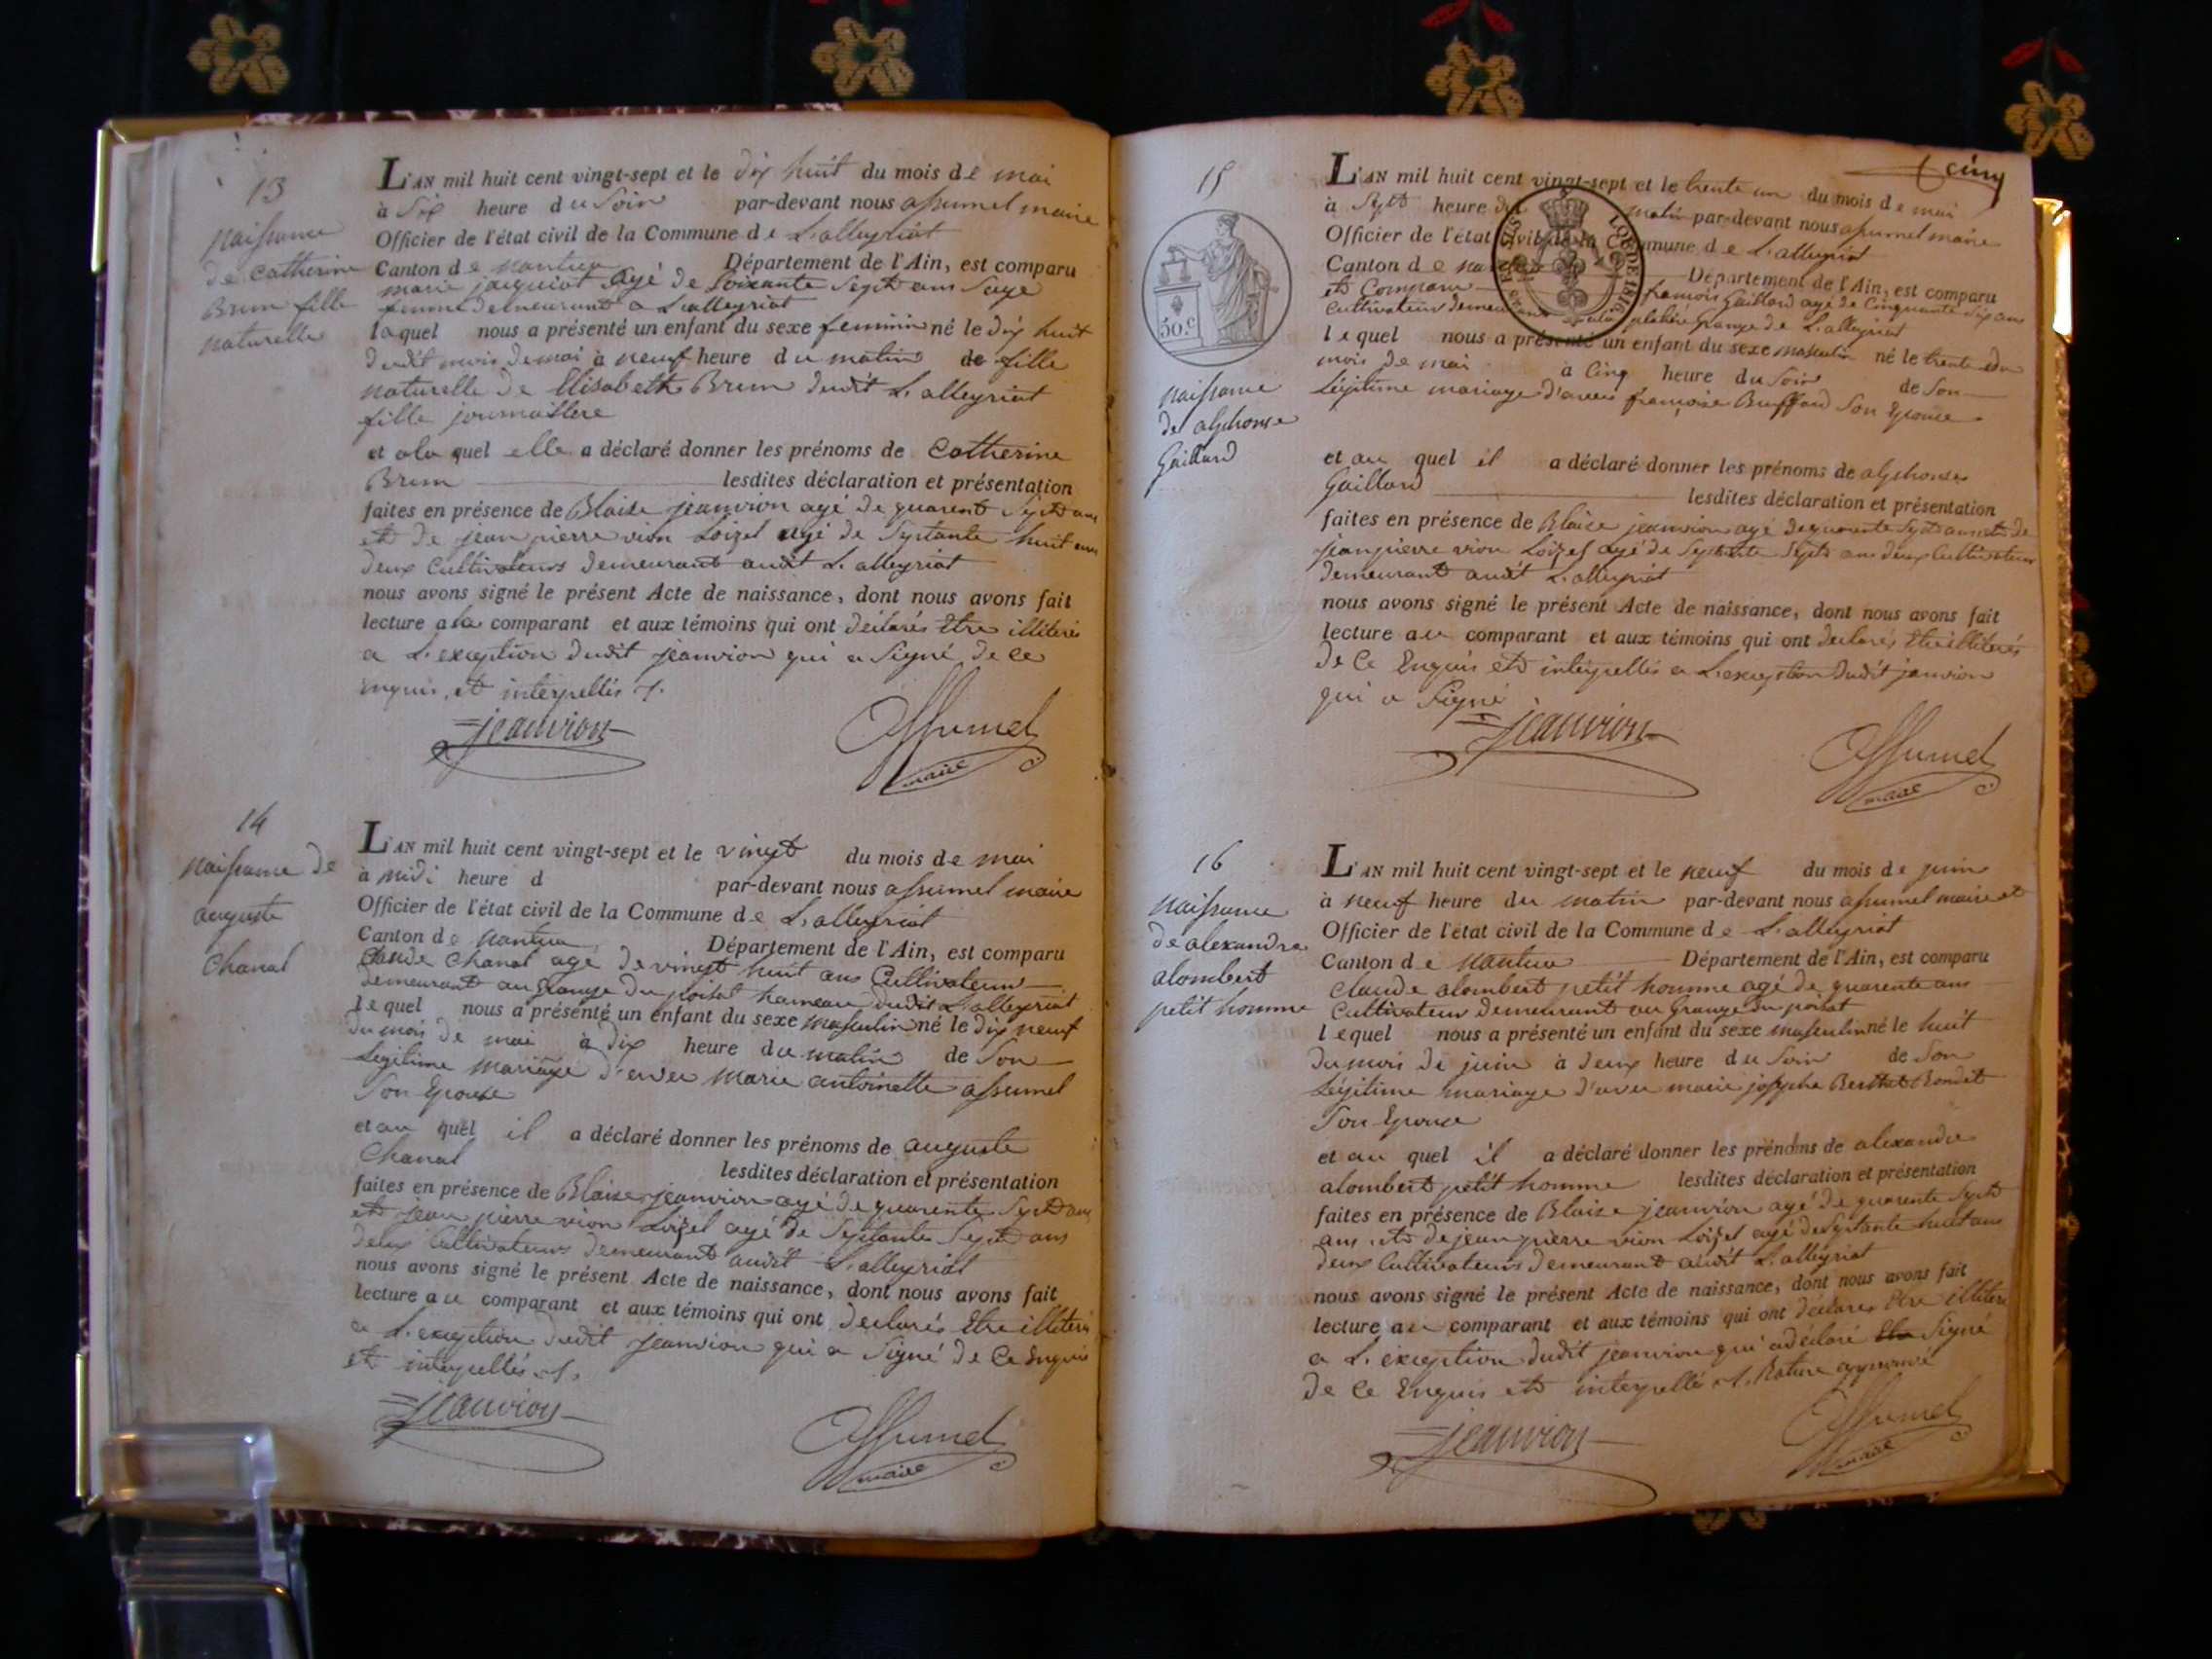 13
naissance
de catherine
Brun fille
naturelle
L'AN mil huit cent vingt-sept et le dix huit du mois de mai
à Six heure du Soir par-devant nous assumel maire
Officier de l'état civil de la Commune de L'alleyriat
Canton de nantua Département de l'Ain, est comparu
marie jacquiot agé de Soixante Sept ans Sage
femme demeurant a L'alleyriat
laquel nous a présenté un enfant du sexe feminin né le dix huit
dudit mois de mai à neuf heure du matin de fille
naturelle de Elisabeth Brun dudit L'alleyriat
fille journallere
et ala quel elle a déclaré donner les prénoms de Catherine
Brun lesdites déclaration et présentation
faites en présence de Blaise jeanvion agé de quarente Sept ans
et de jean pierre vion Loizel agé de Septante huit ans
deux Cultivateurs demeurant audit L'alleyriat
nous avons signé le présent Acte de naissance, dont nous avons fait
lecture a la comparant et aux témoins qui ont déclarés Etre illiterés
a L'exception dudit jeanvion qui a Signé de ce
Enquis et interpellés
jeanvion
Assumel
maire
14
naissance de
auguste
Chanal
L'AN mil huit cent vingt-sept et le vingt du mois de mai
à midi heure d par-devant nous assumel maire
Officier de l'état civil de la Commune de L'alleyriat
Canton de nantua Département de l'Ain, est comparu
Claude Chanal agé de vingt huit ans Cultivateur
demeurant au Grange du poisat hameau dudit L'alleyriat
lequel nous a présenté un enfant du sexe masculin né le dix neuf
du mois de mai à dix heure du matin de Son
Legitime mariage d'avec marie antoinette assumel
Son Epouse
et au quel il a déclaré donner les prénoms de auguste
Chanal lesdites déclaration et présentation
faites en présence de Blaise jeanvion agé de quarente Sept ans
et jean pierre vion Loizel agé de Septante Sept ans
deux Cultivateurs demeurant audit L'alleyriat
nous avons signé le présent Acte de naissance, dont nous avons fait
lecture au comparant et aux témoins qui ont declarés Etre illiterés
a L'exception dudit jeanvion qui a Signé de Ce Enquis
et interpellés
jeanvion
Assumel
maire
cinq
15
50.c
naissance
de alphonse
Gaillard
L'AN mil huit cent vingt-sept et le trente un du mois de mai
à Sept heure du matin par-devant nous assumel maire
Officier de l'état civil de la Commune de L'alleyriat
Canton de nantua Département de l'Ain, est comparu
et Comparu françois Gaillard agé de Cinquante dix ans
Cultivateur demeurant Grange de L'alleyriat
lequel nous a présenté un enfant du sexe masculin né le trente du
mois de mai à Cinq heure du Soir de Son
Légitime mariage d'avec françoise Buffard Son Epouse
et au quel il a déclaré donner les prénoms de alphonse
Gaillard lesdites déclaration et présentation
faites en présence de Blaise jeanvion agé de quarente Sept ans et de
jean pierre vion Loizel agé de Septante Sept ans deux Cultivateurs
demeurant audit L'alleyriat
nous avons signé le présent Acte de naissance, dont nous avons fait
lecture au comparant et aux témoins qui ont declarés Etre illiterés
de Ce Enquis et interpellés a L'exception dudit janvion
qui a Signé
jeanvion
Assumel
maire
LOI DE 1816
16
naissance
de alexandre
alombert
petit homme
L'AN mil huit cent vingt-sept et le neuf du mois de juin
à neuf heure du matin par-devant nous assumel maire et
Officier de l'état civil de la Commune de L'alleyriat
Canton de nantua Département de l'Ain, est comparu
Claude alombert petit homme agé de quarente ans
Cultivateur demeurant au Grange du poisat
lequel nous a présenté un enfant du sexe masculin né le huit
du mois de juin à deux heure du Soir de Son
Légitime mariage d'avec marie josephe Berthet Bondet
Son Epouse
et au quel il a déclaré donner les prénoms de alexandre
alombert petit homme lesdites déclaration et présentation
faites en présence de Blaise jeanvion agé de quarente Sept
ans et de jean pierre vion Loizel agé de Septante huit ans
deux Cultivateurs demeurant audit L'alleyriat
nous avons signé le présent Acte de naissance, dont nous avons fait
lecture au comparant et aux témoins qui ont déclarés Etre illiteré
a L'exception dudit jeanvion qui a déclaré Signé
de Ce Enquis et interpellé Rature approuvé
jeanvion
Assumel
maire